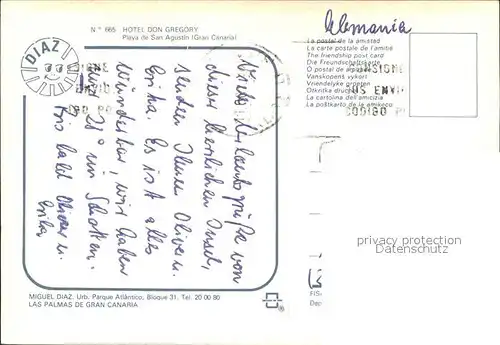 Nº 665 HOTEL DON GREGORY
Playa de San Agustín (Gran Canaria)
DIAZ
Viele Urlaubsgrüße von
dieser herrlichen Insel,
senden Ihnen Oliver u.
Erika. Es ist alles
Wunderbar, wir haben
28° im Schatten.
Bis bald Oliver u.
Erika
MIGUEL DIAZ. Urb. Parque Atlántico, Bloque 31, Tel. 20 00 80
LAS PALMAS DE GRAN CANARIA
Alemania
La postal de la amistad
La carte postale de l'amitié
The friendship post card
Die Freundschaftskarte
O postal de
Vanskapens vykort
Vriendelijke groeten
Otkritka
La cartolina dell'amicizia
La poŝtkarto de la amikeco
SIGNE
ENVIO
CODIGO PO
privacy protection
Datenschutz